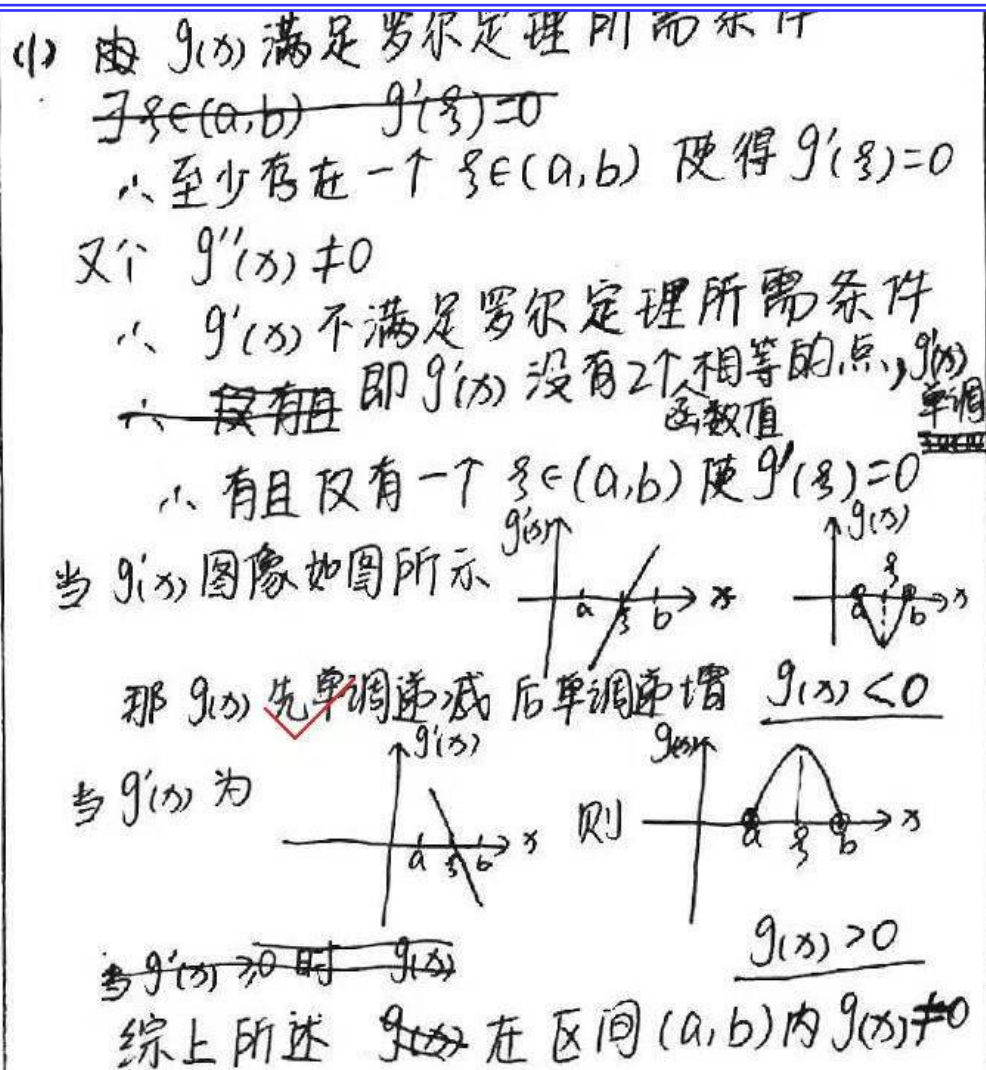 (1) 由 g(x) 满足罗尔定理所需条件
∃ξ∈(a,b) g'(ξ)=0
∴至少存在一个 ξ∈(a,b) 使得 g'(ξ)=0
又个 g''(x)≠0
∴ g'(x) 不满足罗尔定理所需条件
∴ 仅有且 即 g'(x) 没有2个相等的点, g'(x)
函数值 单调
∴ 有且仅有一个 ξ∈(a,b) 使 g'(ξ)=0
当 g'(x) 图像如图所示 g'(x) a ξ b x g(x) a ξ b x
那 g(x) 先单调递减 后单调递增 g(x)<0
当 g'(x) 为 g'(x) a ξ b x 则 g(x) a ξ b x
g(x)>0
当 g'(x)≥0 时 g(x)
综上所述 g(x) 在区间 (a,b) 内 g(x)≠0